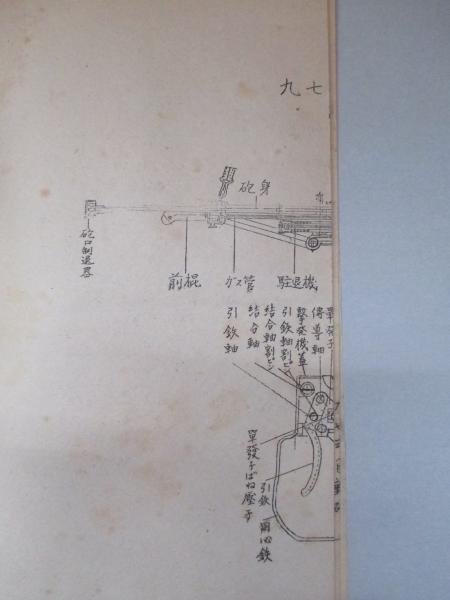 九七
砲身
砲口制退器
前棍
ガス管
駐退機
單発子
傳導軸
撃発機蓋
引鉄軸割ピン
結合軸割ピン
結合軸
引鉄軸
單發子ばね壓子
引鉄
用心鉄